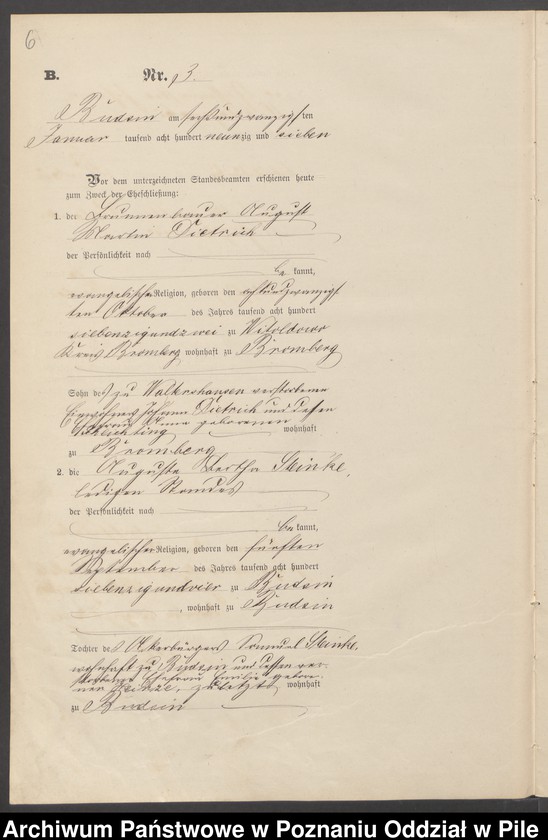 6
B. Nr. 3.
Budsin am sechsundzwanzigsten
Januar tausend acht hundert neunzig und sieben
Vor dem unterzeichneten Standesbeamten erschienen heute
zum Zweck der Eheschließung:
1. der Brunnenbauer August
Martin Dietrich
der Persönlichkeit nach
be kannt,
evangelischer Religion, geboren den achtundzwanzigs
ten Oktober des Jahres tausend acht hundert
siebenzigundzwei zu Witoldowo
Kreis Bromberg, wohnhaft zu Bromberg
Sohn des zu Walkershausen verstorbenen
Einwohners Johann Dietrich und dessen
Ehefrau Anna geborenen
wohnhaft
zu Bromberg
2. die Auguste Bertha Steinke,
ledigen Standes
der Persönlichkeit nach
be kannt,
evangelischer Religion, geboren den fünften
September des Jahres tausend acht hundert
siebenzigundvier zu Budsin
, wohnhaft zu Budsin
Tochter des Ackerbürgers Samuel Steinke,
wohnhaft zu Budsin und dessen ver-
storbene Ehefrau Emilie gebore-
nen zuletzt wohnhaft
zu Budsin
Archiwum Państwowe w Poznaniu Oddział w Pile